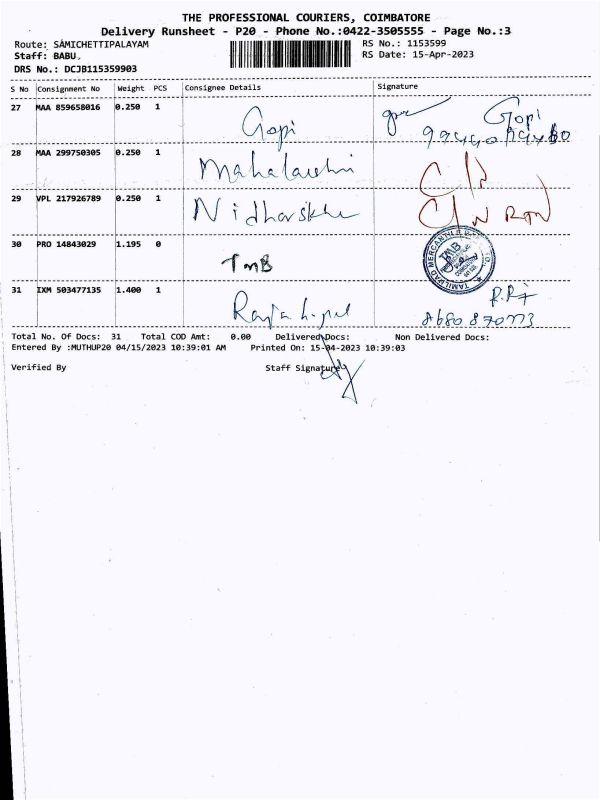 THE PROFESSIONAL COURIERS, COIMBATORE
Delivery Runsheet - P20 - Phone No.:0422-3505555 - Page No.:3
Route: SAMICHETTIPALAYAM
RS No.: 1153599
Staff: BABU
RS Date: 15-Apr-2023
DRS No.: DCJB115359903
S No Consignment No Weight PCS Consignee Details Signature
27 MAA 859658016 0.250 1 Gopi Gopi
28 MAA 299750305 0.250 1
29 VPL 217926789 0.250 1
30 PRO 14843029 1.195 0 TMB TMB
31 IXM 503477135 1.400 1
Total No. Of Docs: 31 Total COD Amt: 0.00 Delivered Docs: Non Delivered Docs:
Entered By :MUTHUP20 04/15/2023 10:39:01 AM Printed On: 15-04-2023 10:39:03
Verified By Staff Signature